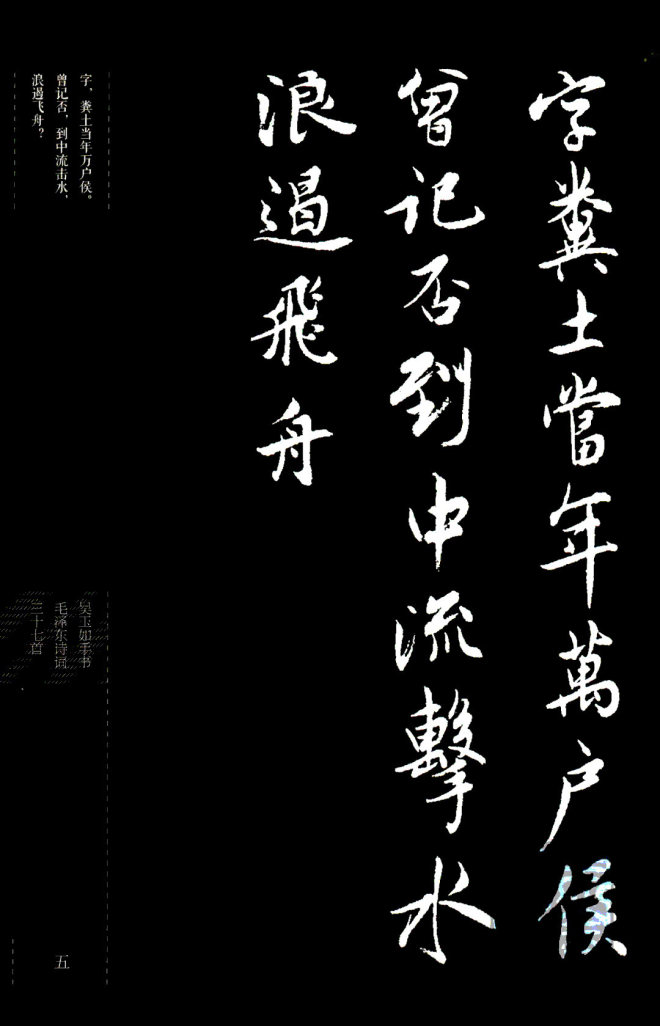 字糞土當年萬户侯
曾记否到中流擊水
浪遏飛舟
字，粪土当年万户侯。
曾记否，到中流击水，
浪遏飞舟？
吴玉如手书
毛泽东诗词
三十七首
五